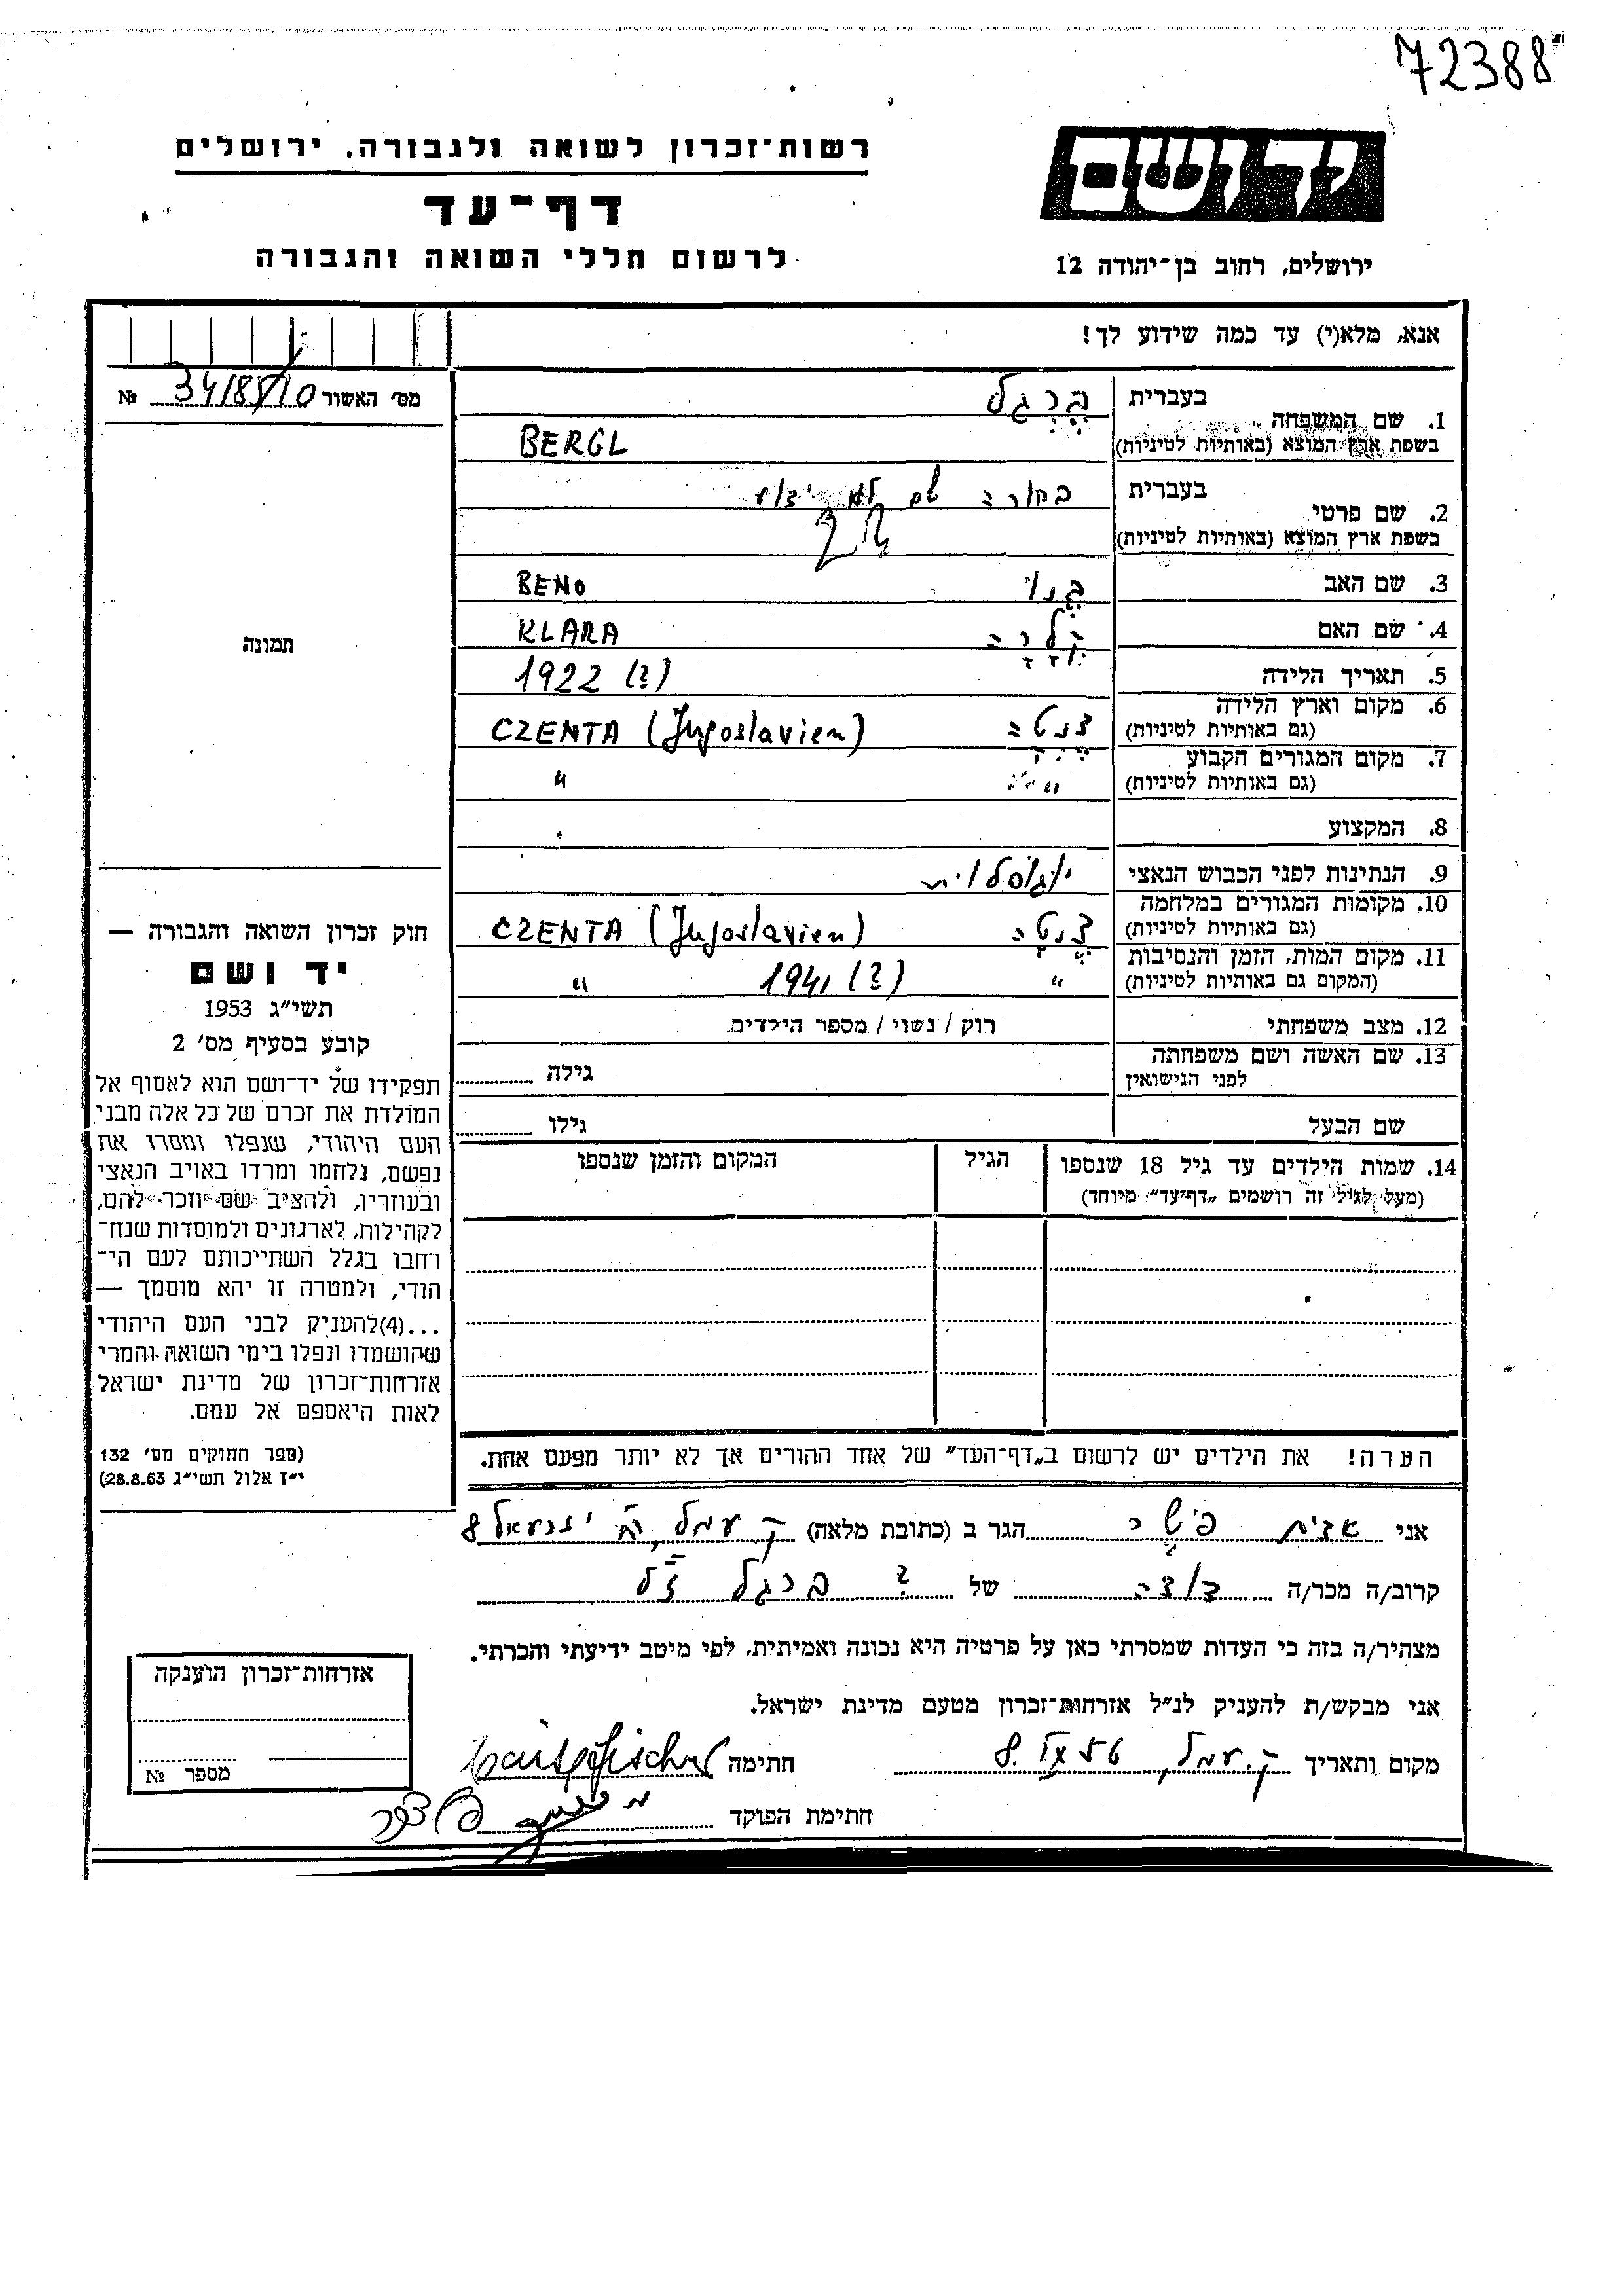 72388
יד ושם
רשות־זכרון לשואה ולגבורה, ירושלים
דף־עד
לרשום חללי השואה והגבורה
ירושלים, רחוב בן־יהודה 12
אנא, מלא(י) עד כמה שידוע לך!
מס׳ האשור № 3418/510
1. שם המשפחה בעברית ברגל
בשפת ארץ המוצא (באותיות לטיניות) BERGL
2. שם פרטי בעברית בחורה שם לא ידוע
בשפת ארץ המוצא (באותיות לטיניות)
3. שם האב בנו BENO
4. שם האם קלרה KLARA
5. תאריך הלידה 1922 (?)
6. מקום וארץ הלידה צנטה CZENTA (Jugoslavien)
(גם באותיות לטיניות)
7. מקום המגורים הקבוע " "
(גם באותיות לטיניות)
8. המקצוע
9. הנתינות לפני הכבוש הנאצי יוגוסלוית
10. מקומות המגורים במלחמה צנטה CZENTA (Jugoslavien)
(גם באותיות לטיניות)
11. מקום המות, הזמן והנסיבות " 1941 (?) "
(המקום גם באותיות לטיניות)
12. מצב משפחתי רוק / נשוי / מספר הילדים
13. שם האשה ושם משפחתה גילה
לפני הנישואין
שם הבעל גילו
14. שמות הילדים עד גיל 18 שנספו הגיל המקום והזמן שנספו
(מעל לגיל זה רושמים „דף־עד” מיוחד)
הערה! את הילדים יש לרשום ב„דף־העד” של אחד ההורים אך לא יותר מפעם אחת.
תמונה
חוק זכרון השואה והגבורה —
יד ושם
תשי״ג 1953
קובע בסעיף מס׳ 2
תפקידו של יד־ושם הוא לאסוף אל
המולדת את זכרם של כל אלה מבני
העם היהודי, שנפלו ומסרו את
נפשם, נלחמו ומרדו באויב הנאצי
ובעוזריו, ולהציב שם וזכר להם,
לקהילות, לארגונים ולמוסדות שנח־
רחבו בגלל השתייכותם לעם הי־
הודי, ולמטרה זו יהא מוסמך —
...(4)להעניק לבני העם היהודי
שהושמדו ונפלו בימי השואה והמרי
אזרחות־זכרון של מדינת ישראל
לאות היאספם אל עמם.
(ספר החוקים מס׳ 132
י״ז אלול תשי״ג 28.8.53)
אני פישר הגר ב (כתובת מלאה) ק. עמל, רח יזרעאל 8
קרוב/ה מכר/ה של ? ברגל ז״ל
מצהיר/ה בזה כי העדות שמסרתי כאן על פרטיה היא נכונה ואמיתית, לפי מיטב ידיעתי והכרתי.
אני מבקש/ת להעניק לנ״ל אזרחות־זכרון מטעם מדינת ישראל.
מקום ותאריך ק. עמל, חתימה
חתימת הפוקד
אזרחות־זכרון הוענקה
מספר №